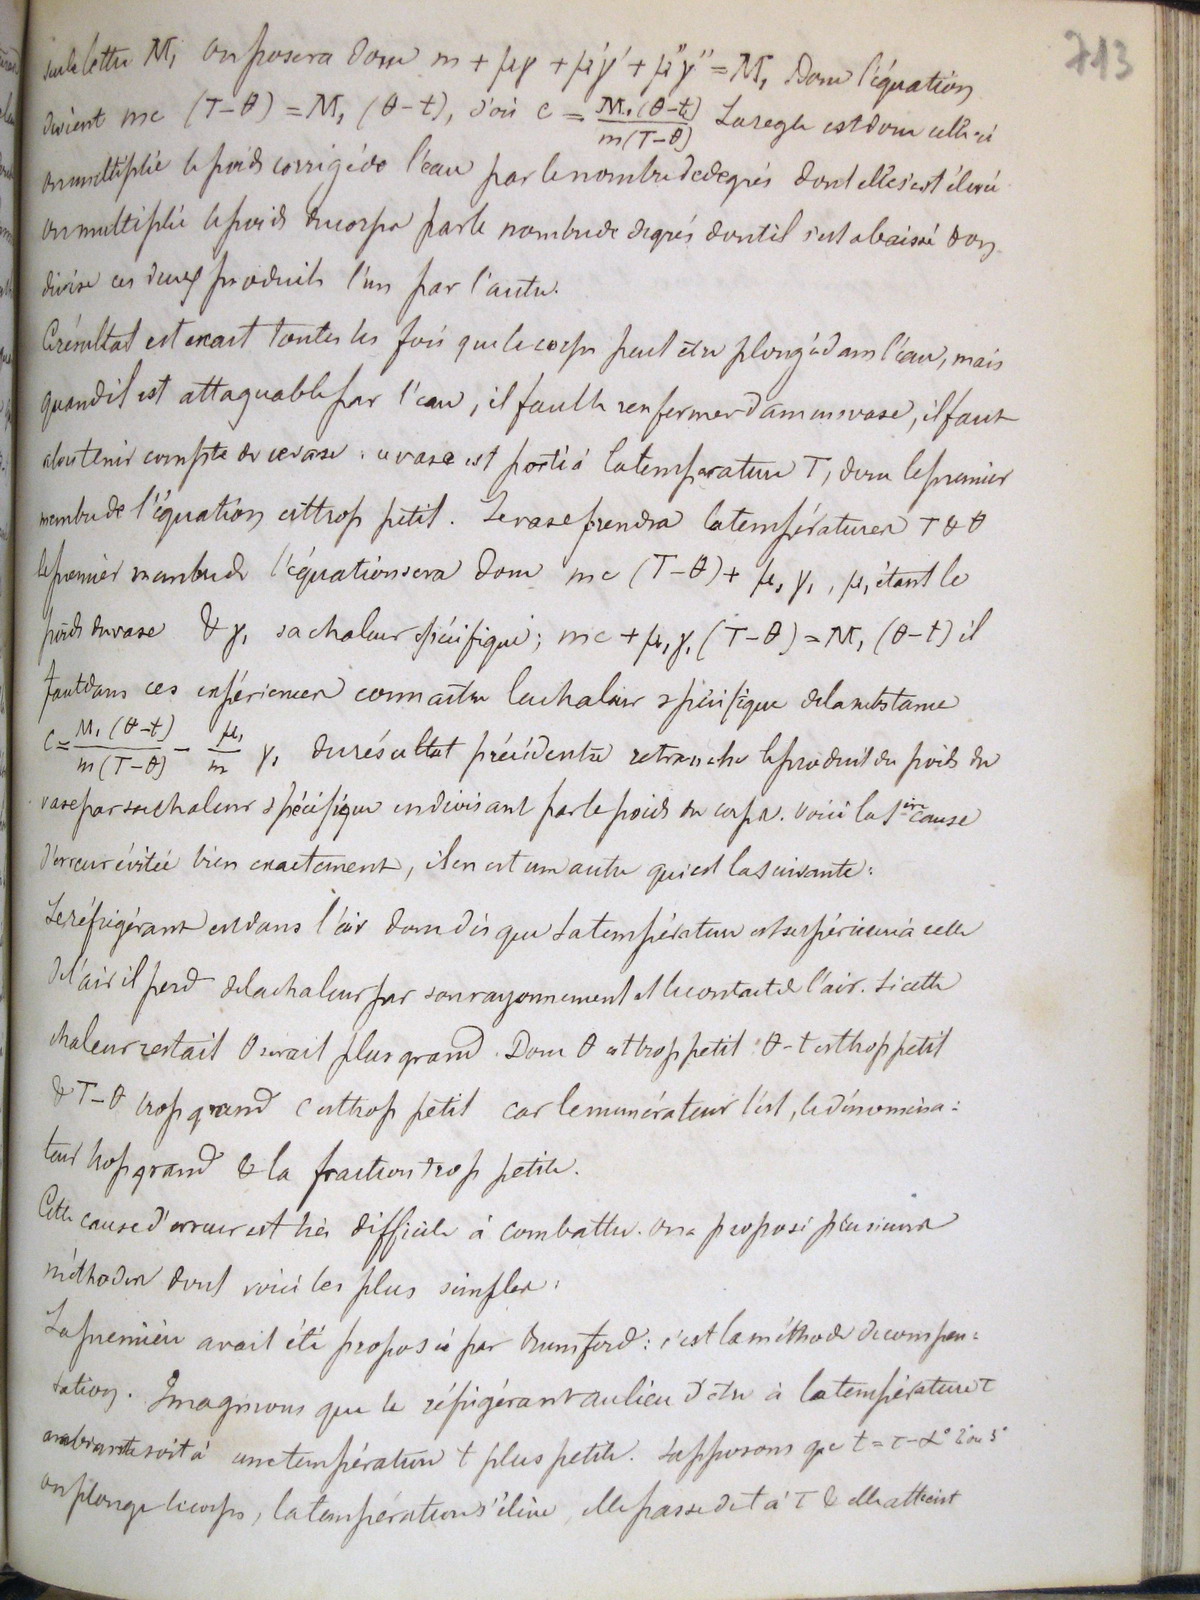 713
seule lettre M₁ on posera donc m + μγ + μ'γ' + μ"γ" = M₁ Donc l'équation
devient mc (T-θ) = M₁ (θ-t), d'où c = M₁(θ-t)/m(T-θ) La regle est donc celle ci
on multiplie le poids corrigé de l'eau par le nombre de degrés dont elle s'est élevée
on multiplie le poids du corps par le nombre de degrés dont il s'est abaissé & on
divise ces deux produits l'un par l'autre.
Ce résultat est exact toutes les fois que le corps peut être plongé dans l'eau, mais
quand il est attaquable par l'eau, il faut le renfermer dans un vase, il faut
alors tenir compte de ce vase. ce vase est porté à la température T, donc le premier
membre de l'équation est trop petit. Le vase prendra la températures T & θ
le premier membre de l'équation sera donc mc (T-θ) + μ₁ γ₁, μ₁ étant le
poids du vase & γ₁ sa chaleur spécifique; mc + μ₁γ₁ (T-θ) = M₁ (θ-t) il
faut dans ces expériences connaitre la chaleur spécifique de la substance
c = M₁(θ-t)/m(T-θ) - μ₁/m γ₁ du résultat précédent on retranche le produit du poids du
vase par sa chaleur spécifique en divisant par le poids du corps. Voici la 1ière cause
d'erreur évitée bien exactement, il en est une autre qui est la suivante:
Le réfrigérant est dans l'air donc dès que sa température est supérieure à celle
de l'air il perd de la chaleur par son rayonnement et le contact de l'air. Si cette
chaleur restait θ serait plus grand. Donc θ est trop petit θ-t est trop petit
& T-θ trop grand c est trop petit car le numérateur l'est, le dénomina:
teur trop grand & la fraction trop petite.
Cette cause d'erreur est très difficile à combattre. on a proposé plusieurs
méthodes dont voici les plus simples:
La première avait été proposée par Rumford: c'est la méthode de compen:
sation. Imaginons que le réfrigérant au lieu d'être à la température τ
ambiante soit à une température t plus petite. Supposons que t = τ-α° 2 ou 3°
on plonge le corps, la température s'élève, elle passe de t à τ & elle atteint